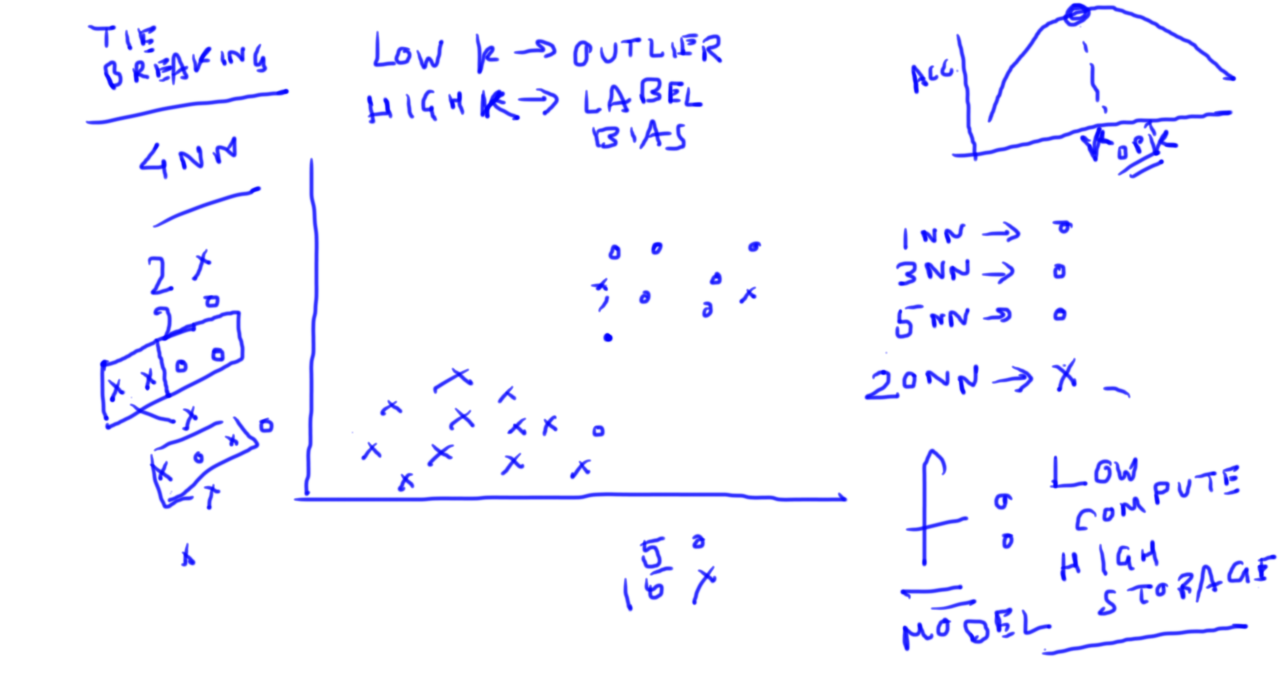 TIE
BREAKING
4NN
2 x
2 o
x x o o
x
x o x o
x
x
LOW k → OUTLIER
HIGH K → LABEL
BIAS
5 o
15 x
ACC.
1NN → o
3NN → o
5NN → o
20NN → x
f :
MODEL
LOW
COMPUTE
HIGH
STORAGE